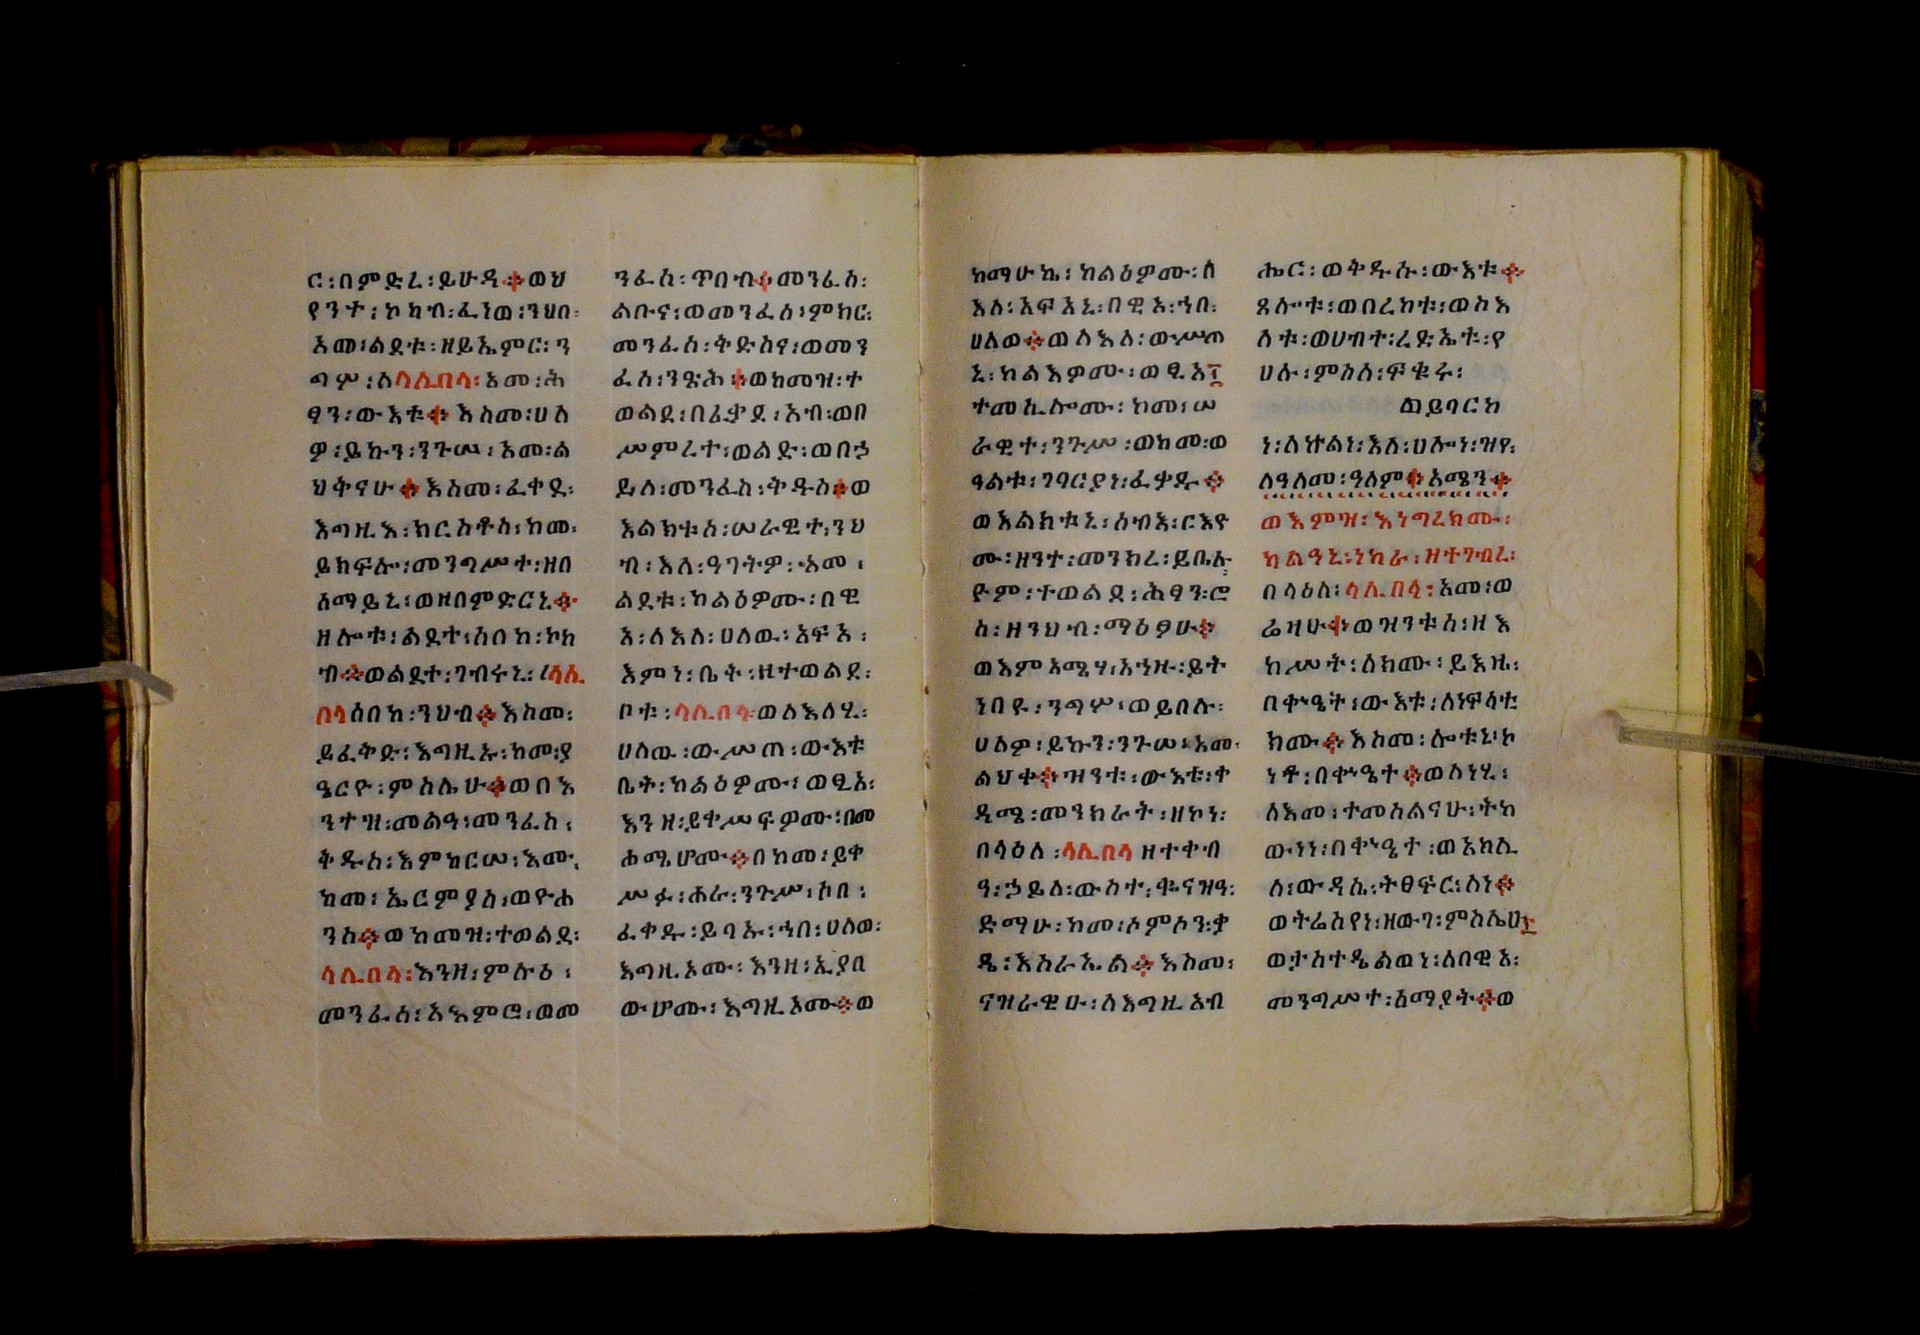 ር፡በምድረ፡ይሁዳ፨ወህ
የንተ፡ኮከብ፡ፈነወ፡ንህበ፡
አመ፡ልደቱ፡ዘይኤምር፡ን
ጣሦ፡ለላሊበላ፡አመ፡ሕ
ፃን፡ውእቱ፨እስመ፡ሀለ
ዎ፡ይኩን፡ንጉሠ፡አመ፡ል
ህቅናሁ፨እስመ፡ፈቀደ፡
እግዚአ፡ክርስቶስ፡ከመ፡
ይክፍሎ፡መንግሥተ፡ዘበ
ሰማይኒ፡ወዘበምድርኒ፨
ዘሎቱ፡ልደተ፡ሰበከ፡ኮከ
ብ፨ወልደተ፡ገብሩኒ፡ለላሊ
በላሰበከ፡ንህብ፨እስመ፡
ይፈቅድ፡እግዚኡ፡ከመ፡ያ
ዔርዮ፡ምስሌሁ፨ወበእ
ንተዝ፡መልዓ፡መንፈስ፡
ቅዱስ፡እምከርሠ፡እሙ፡
ከመ፡ኤርምያስ፡ወዮሐ
ንስ፨ወከመዝ፡ተወልደ፡
ላሊበላ፡እንዘ፡ምሉዕ፡
መንፈሰ፡አእምሮ፡ወመ
ንፈስ፡ጥበብ፨መንፈሰ፡
ልቡና፡ወመንፈሰ፡ምክር፡
መንፈስ፡ቅድስና፡ወመን
ፈሰ፡ንጽሕ፨ወከመዝ፡ተ
ወልደ፡በፈቃደ፡አብ፡ወበ
ሥምረተ፡ወልድ፡ወበኃ
ይለ፡መንፈስ፡ቅዱስ፨ወ
እልክቱስ፡ሠራዊተ፡ንህ
ብ፡እለ፡ዓገትዎ፡አመ፡
ልደቱ፡ከልዕዎሙ፡በዊ
አ፡ለእለ፡ሀለዉ፡አፍአ፡
እምነ፡ቤት፡ዘተወልደ፡
ቦቱ፡ላሊበላ፡ወለእለሂ፡
ሀለዉ፡ውሥጠ፡ውእቱ
ቤት፡ከልዕዎሙ፡ወፂአ፡
እንዘ፡ይቀሥፍዎሙ፡በመ
ሐሚሆሙ፨በከመ፡ይቀ
ሥፉ፡ሐራ፡ንጉሥ፡ሶበ፡
ፈቀዱ፡ይባኡ፡ኀበ፡ሀለወ፡
እግዚአሙ፡እንዘ፡ኢያበ
ውሆሙ፡እግዚአሙ፨ወ
ከማሁኬ፡ከልዕዎሙ፡ለ
እለ፡አፍአኒ፡በዊአ፡ኀበ፡
ሀለወ፨ወለእለ፡ውሥጠ
ኒ፡ከልእዎሙ፡ወፂአ፤
ተመሲሎሙ፡ከመ፡ሠ
ራዊተ፡ንጉሥ፡ወከመ፡ወ
ዓልቱ፡ገባርያነ፡ፈቃዱ፨
ወእልክቱኒ፡ሰብእ፡ርእዮ
ሙ፡ዘንተ፡መንክረ፡ይቤሉ
ዮም፡ተወልደ፡ሕፃን፡ሮ
ሰ፡ዘንህብ፡ማዕፆሁ፨
ወእምአሜሃ፡አኀዙ፡ይት
ነበዩ፡ንጣሦ፡ወይበሉ፡
ሀለዎ፡ይኩን፡ንጉሠ፡አመ፡
ልህቀ፨ዝንቱ፡ውእቱ፡ቀ
ዳሜ፡መንክራት፡ዘኮነ፡
በላዕለ፡ላሊበላዘተቀብ
ዓ፡ኃይለ፡ውስተ፡ቈናዝዓ፡
ድማሁ፡ከመ፡ሶምሶን፡ቃ
ዴ፡እስራኤል፨እስመ፡
ናዝራዊሁ፡ለእግዚአብ
ሔር፡ወቅዱሱ፡ውእቱ፨
ጸሎቱ፡ወበረከቱ፡ወስእ
ለቱ፡ወሀብተ፡ረድኤቱ፡የ
ሀሉ፡ምስለ፡ፍቁሩ፡
ወይባርከ
ነ፡ለኵልነ፡እለ፡ሀሎነ፡ዝየ፡
ለዓለመ፡ዓለም፨አሜን፨
ወእምዝ፡እነግረክሙ፡
ካልዓኒ፡ነከራ፡ዘተገብረ፡
በላዕለ፡ላሊበላ፡አመ፡ወ
ሬዛሁ፨ወዝንቱስ፡ዘእ
ከሥት፡ለክሙ፡ይእዜ፡
በቀኍዔት፡ውእቱ፡ለነፍሳቲ
ክሙ፨እስመ፡ሎቱኒ፡ኮ
ነቶ፡በቀኍዔተ፨ወለነሂ፡
ለእመ፡ተመሰልናሁ፡ትከ
ውነነ፡በቀኍዔተ፡ወአክሊ
ለ፡ውዳሴ፡ትፀፍር፡ለነ፨
ወትሬስየነ፡ዘውገ፡ምስሌሁ፤
ወታስተዴልወነ፡ለበዊአ፡
መንግሥተ፡ሰማያት፨ወ